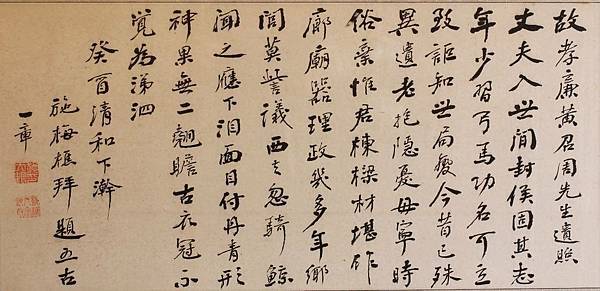 故孝廉黃召周先生遺照
丈夫入世間封侯固其志
年少習弓馬功名可立
致詎知世局變今昔已殊
異遺老抱隱憂毋寧時
俗棄惟君棟樑材堪作
廊廟器理政幾多年鄉
閭莫訾議西去忽騎鯨
聞之應下泪面目付丹青形
神果無二翹瞻古衣冠不
覺為涕泗
癸酉清和下澣
施梅樵拜題五古
一章